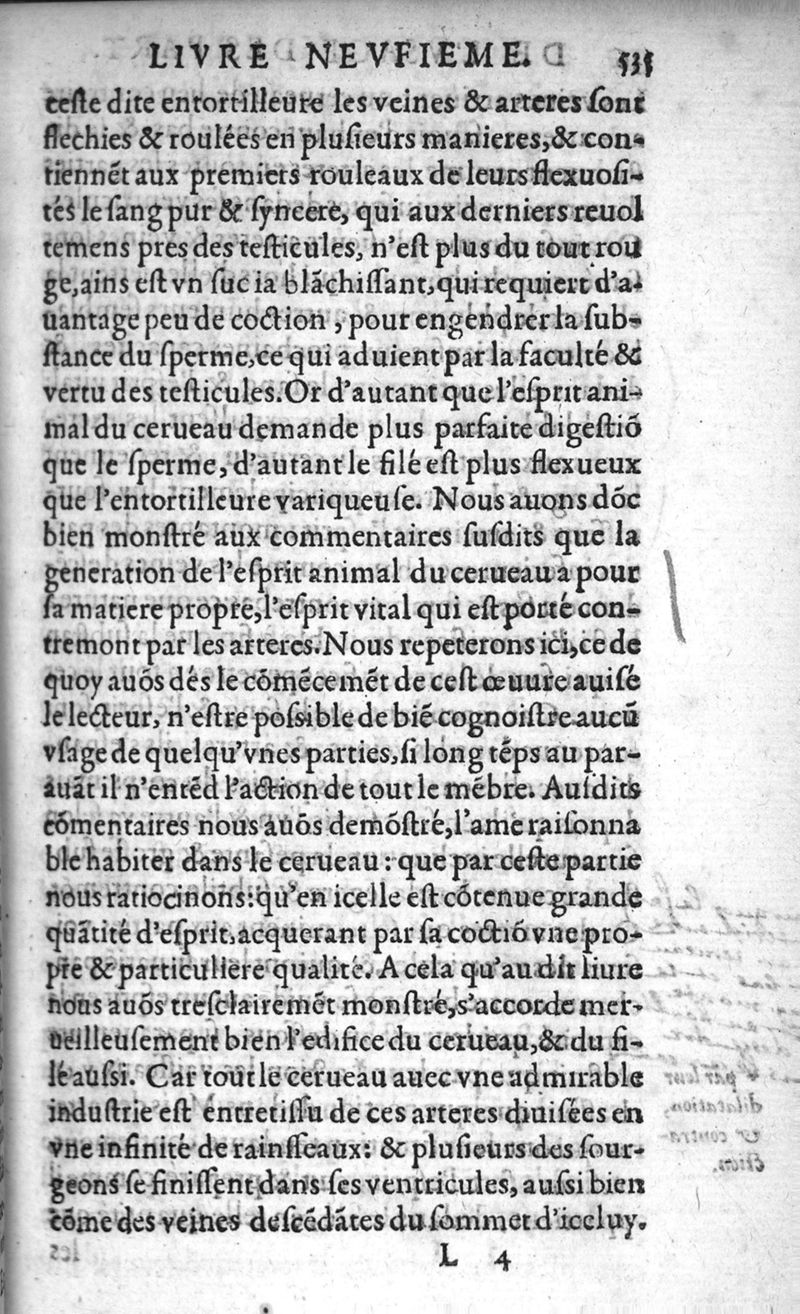 LIVRE NEVFIEME. 535
ceste dite entortilleure les veines & arteres sont
flechies & roulées en plusieurs manieres,& con-
tiennẽt aux premiers rouleaux de leurs flexuosi-
tés le sang pur & syncere, qui aux derniers reuol
temens pres des testicules, n'est plus du tout rou
ge,ains est vn suc ia blãchissant,qui requiert d'a-
uantage peu de coction , pour engendrer la sub-
stance du sperme,ce qui aduient par la faculté &
vertu des testicules.Or d'autant que l'esprit ani-
mal du cerueau demande plus parfaite digestiõ
que le sperme, d'autant le filé est plus flexueux
que l'entortilleure variqueuse. Nous auons dõc
bien monstré aux commentaires susdits que la
generation de l'esprit animal du cerueau a pour
sa matiere propre,l'esprit vital qui est porté con-
tremont par les arteres.Nous repeterons ici,ce de
quoy auõs dés le cõmẽcemẽt de cest œuure auisé
le lecteur, n'estre possible de biẽ cognoistre aucũ
vsage de quelqu'vnes parties,si long tẽps au par-
auãt il n'entẽd l'action de tout le mẽbre. Ausdits
cõmentaires nous auõs demõstré,l'ame raisonna
ble habiter dans le cerueau : que par ceste partie
nous ratiocinons:qu'en icelle est cõtenue grande
quãtité d'esprit,acquerant par sa coctiõ vne pro-
pre & particuliere qualité. A cela qu'au dit liure
nous auõs tresclairemẽt monstré,s'accorde mer-
ueilleusement bien l'edifice du cerueau,& du fi-
lé aussi. Car tout le cerueau auec vne admirable
industrie est entretissu de ces arteres diuisées en
vne infinité de rainsseaux: & plusieurs des sour-
geons se finissent dans ses ventricules, aussi bien
cõme des veines descẽdãtes du sommet d'iceluy.
L 4